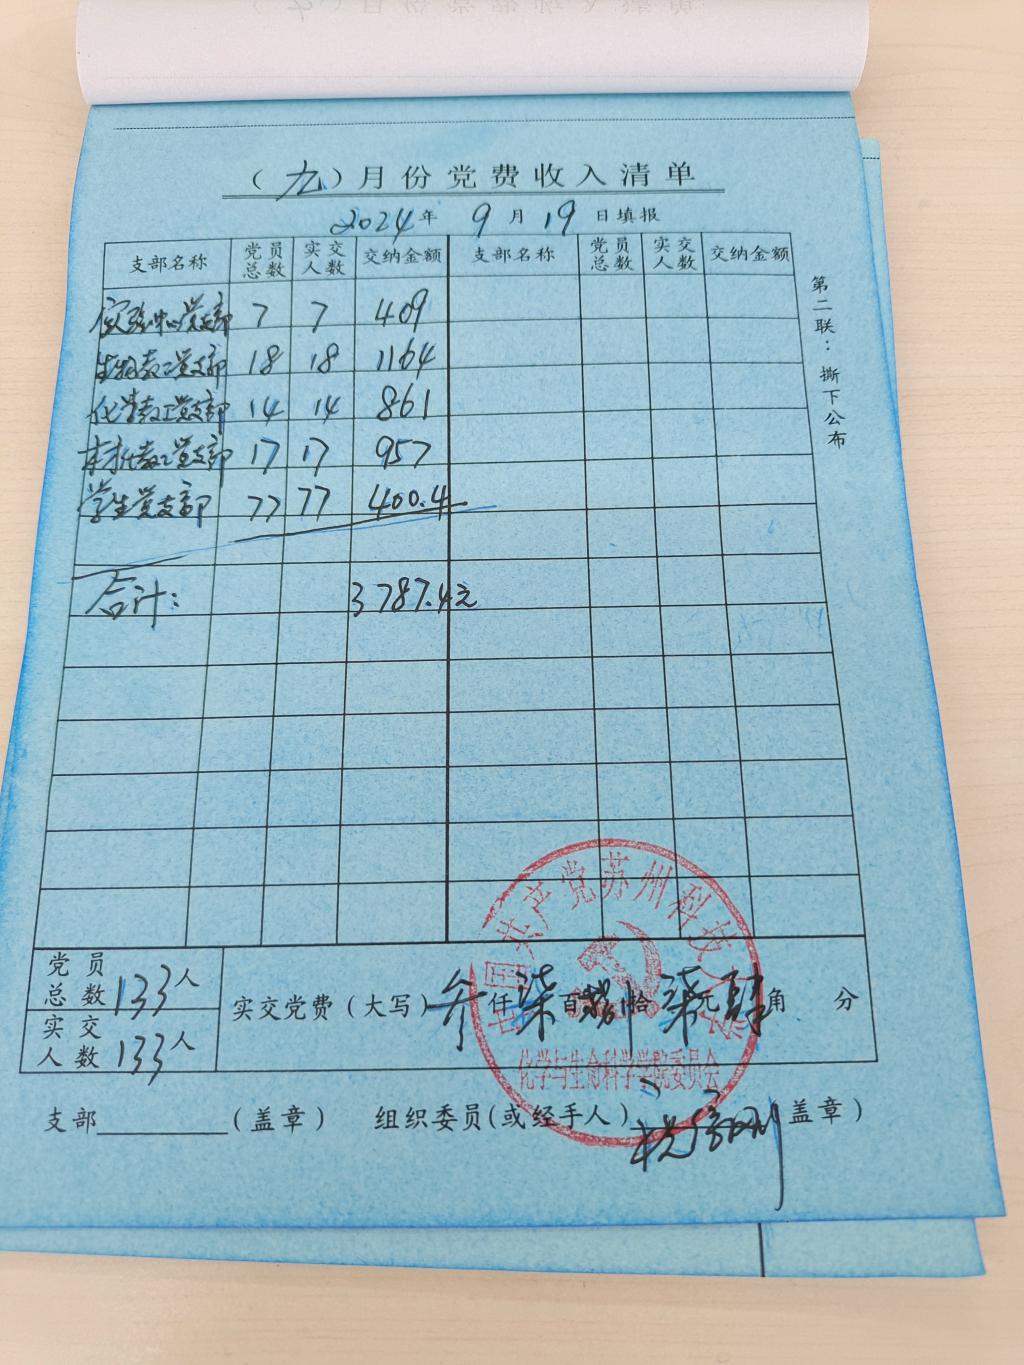 （九）月份党费收入清单
2024年 9月19日填报
支部名称 党员总数 实交人数 交纳金额 支部名称 党员总数 实交人数 交纳金额
实验中心党支部 7 7 409
生物教工党支部 18 18 1164
化学教工党支部 14 14 861
材料教工党支部 17 17 957
学生党支部 77 77 400.4
合计： 3787.4元
第二联：撕下公布
党员总数 133人
实交人数 133人
实交党费（大写）叁仟柒百捌拾柒元肆角 分
中国共产党苏州科技大学
化学与生命科学学院委员会
支部（盖章） 组织委员(或经手人) 盖章）